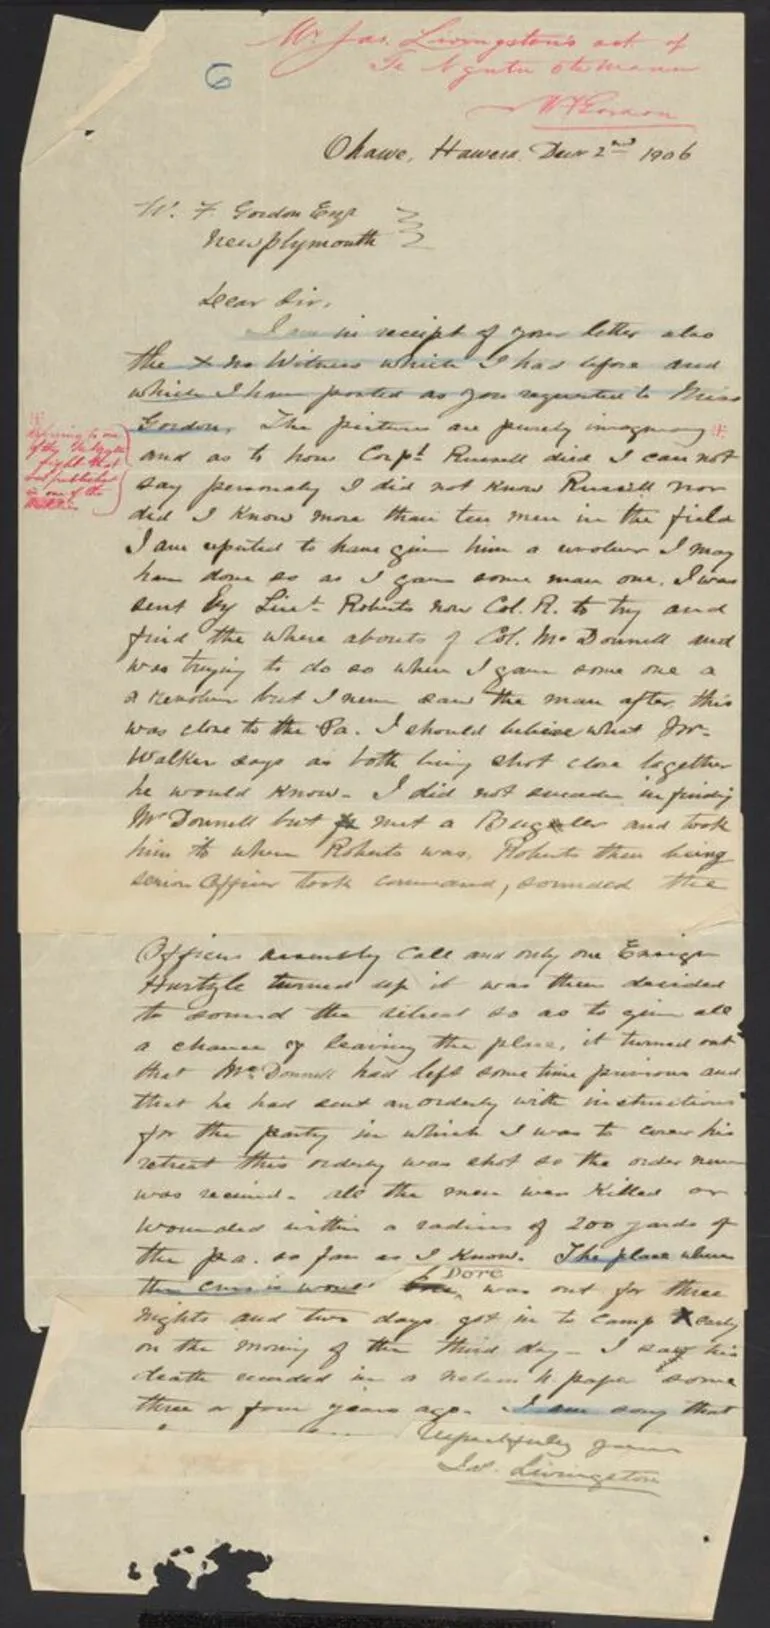 Mr Jas. Livingston's act of
Te Ngutu o te Manu
WFGordon
6
Ohawe, Hawera Decr 2nd 1906
W. F Gordon Esqr
New plymouth
Dear Sir,
I am in receipt of your letter also
the + no Witness which I had before and
which I have posted as you requested to Miss
Gordon. The pictures are purely imaginary
and as to how Corpl Russell died I can not
say personaly I did not know Russell nor
did I know more than ten men in the field
I am reputed to have given him a revolver I may
have done so as I gave some man one. I was
sent by Lieut Roberts now Col. R. to try and
find the where abouts of Col. McDonnell and
was trying to do so when I gave some one a
a revolver but I never saw the man after, this
was close to the Pa. I should believe what Mr
Walker says as both being shot close together
he would know. I did not succeed in finding
McDonnell but met a Bugler and took
him to where Roberts was, Roberts then being
senior Officer took command, sounded the
Officers assembly Call and only one Ensign
Hurtzle turned up it was then decided
to sound the retreat so as to give all
a chance of leaving the place, it turned out
that McDonnell had left some time privious and
that he had sent an orderly with instructions
for the party in which I was to cover his
retreat this orderly was shot so the order never
was received. all the men were Killed or
Wounded within a radius of 200 yards of
the pa. so far as I Know. The place where
Dore
was out for three
nights and two days got in to camp early
on the morning of the third day - I saw his
death recorded in a paper some
three or four years ago. I am sorry that
respectfully yours
Jas. Livingston
referring to one
of the
fight that
was published
in one of the